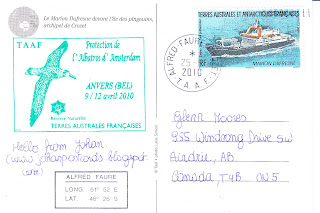 Le Marion Dufresne devant l'île des pingouins,
archipel de Crozet
TAAF
Protection de
l'Albatros d'Amsterdam
ANVERS (BEL)
9 / 12 avril 2010
Réserve Naturelle
TERRES AUSTRALES FRANÇAISES
TERRES AUSTRALES ET ANTARCTIQUES FRANÇAISES
MARION DUFRESNE
ALFRED FAURE
25 -
2010
T.A.A.F.
Hello from Johan
(www.johanpostcards.blogspot
com)
ALFRED FAURE
LONG. 51° 52 E
LAT. 46° 25 S
Glenn Moores
955 Windsong Drive SW
Airdrie, AB
Canada, T4B 0N5